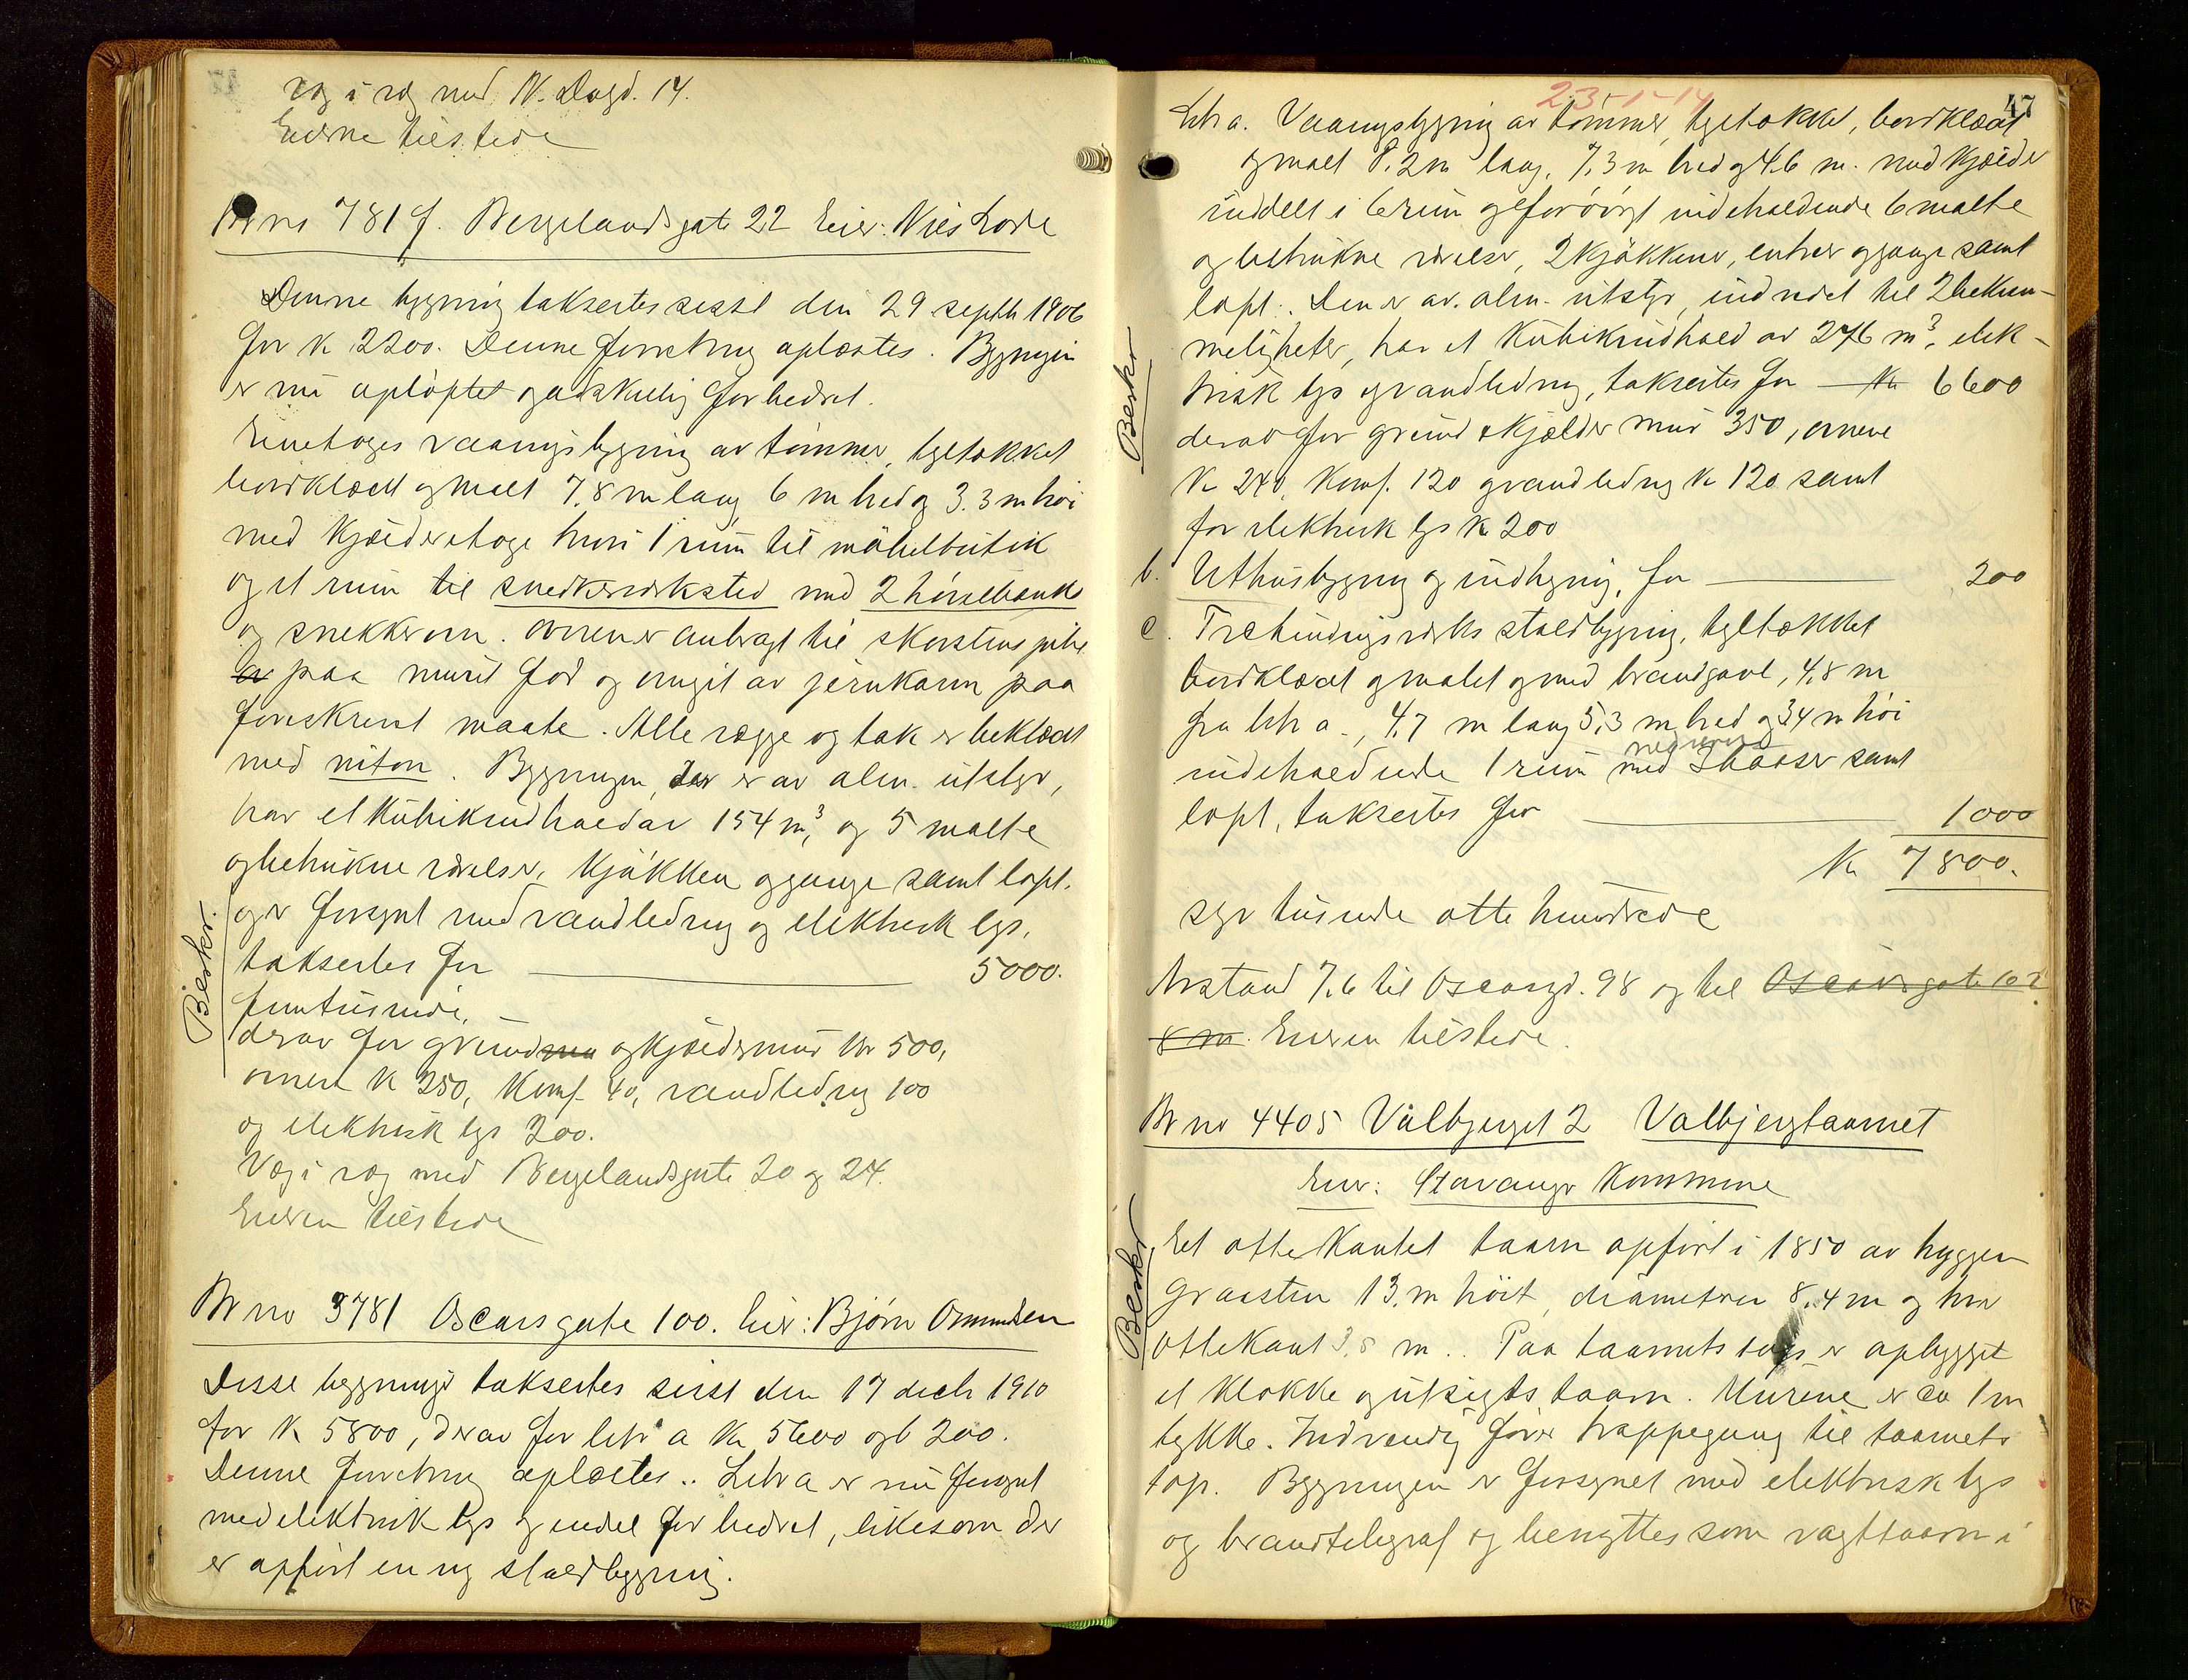 væg i væg med N. Dagd. 14.
Eierne tilstede
Br no 781 f. Bergelandsgate 22 Eier: Nies Lode
Denne bygning taksertes sisst den 29 septb 1906
for k 2200. Denne forretning oplæstes. Bygningen
er nu opløftet og adskillig forbedret.
Eenetages vaaningsbygning av tömmer, tegltækket
bordklædt og malt 7,8 m lang 6 m bred og 3.3 m höi
med kjælderetage hvori 1 rum til möbelbutik
og et rum til snedkerverksted med 2 hövlebænke
og snekkerovn. ovnen er anbragt til skorstens pibe
paa muret fod og omgit av jernkarm paa
foreskrevet maate. Alle vægge og tak er beklædt
med niton. Bygningen, der er av alm. utstyr,
har et kubikindhold av 154 m³, og 5 malte
og betrukne værelser, kjökken og gange samt loft.
og er forsynt med vandledning og elektrisk lys,
taksertes for 5000.
femtusinde,
derav for grund og kjældermur kr 500,
ovnene k 250, komf. 40, vandledning 100
og elektrisk lys 200.
Væg i væg med Bergelandsgate 20 og 24.
Eieren tilstede
Beskr.
Br no 3781 Oscarsgate 100. Eier: Bjørn Ommundsen
Disse bygninger taksertes sisst den 17 decb 1910
for k 5800, derav for litr a kr 5600 og b 200.
Denne forretning oplæstes.. Litra a er nu forsynt
med elektrisk lys og endel forbedret, likesom der
er opfört en ny staldbygning.
23-1-14
47
Litr a. Vaaningsbygning av tömmer, tegltækket, bordklædt
og malt 8.2 m lang, 7,3 m bred og 4.6 m. med kjælder
inddelt i 6 rum og forövrigt indeholdende 6 malte
og betrukne værelser, 2 kjökkener, entreer og gange samt
loft. Den er av. alm. utstyr, indredet til 2 bekvem-
meligheter, har et kubikindhold av 276 m³, elek-
trisk lys og vandledning, taksertes for kr 6600
derav for grund & kjælder mur 350, ovnene
k 240, komf. 120 og vandledning kr 120 samt
for elektrisk lys k 200
Beskr
b. Uthusbygning og indhegning, for 200
c. Et bindingsverks staldbygning, tegltækket
bordklædt og malet og med brandgavl, 4,8 m
fra litr a., 4,7 m lang 5,3 m bred og 3,4 m höi
indeholdende 1 rum med 3 baaser samt
loft, taksertes for 1000
Kr 7800.
syv tusinde otte hundrede
Avstand 7,6 til Oscarsgd. 98 og til Oscarsgate 102
8 m. Eieren tilstede.
Br no 4405 Valbjerget 2 Valbjergtaarnet
Eier: Stavanger Kommune
Beskr
Eet ottekantet taarn opfört i 1850 av huggen
graasten 13. m höit, diameteren 8.4 m og hver
ottekant 3,8 m.. Paa taarnets top er opbygget
et klokke og utsigts taarn. Murene er ca 1 m
tykke. Indvendig förer trappegang til taarnets
top. Bygningen er forsynet med elektrisk lys
og brandtelegraf og benyttes som vagttaarn i